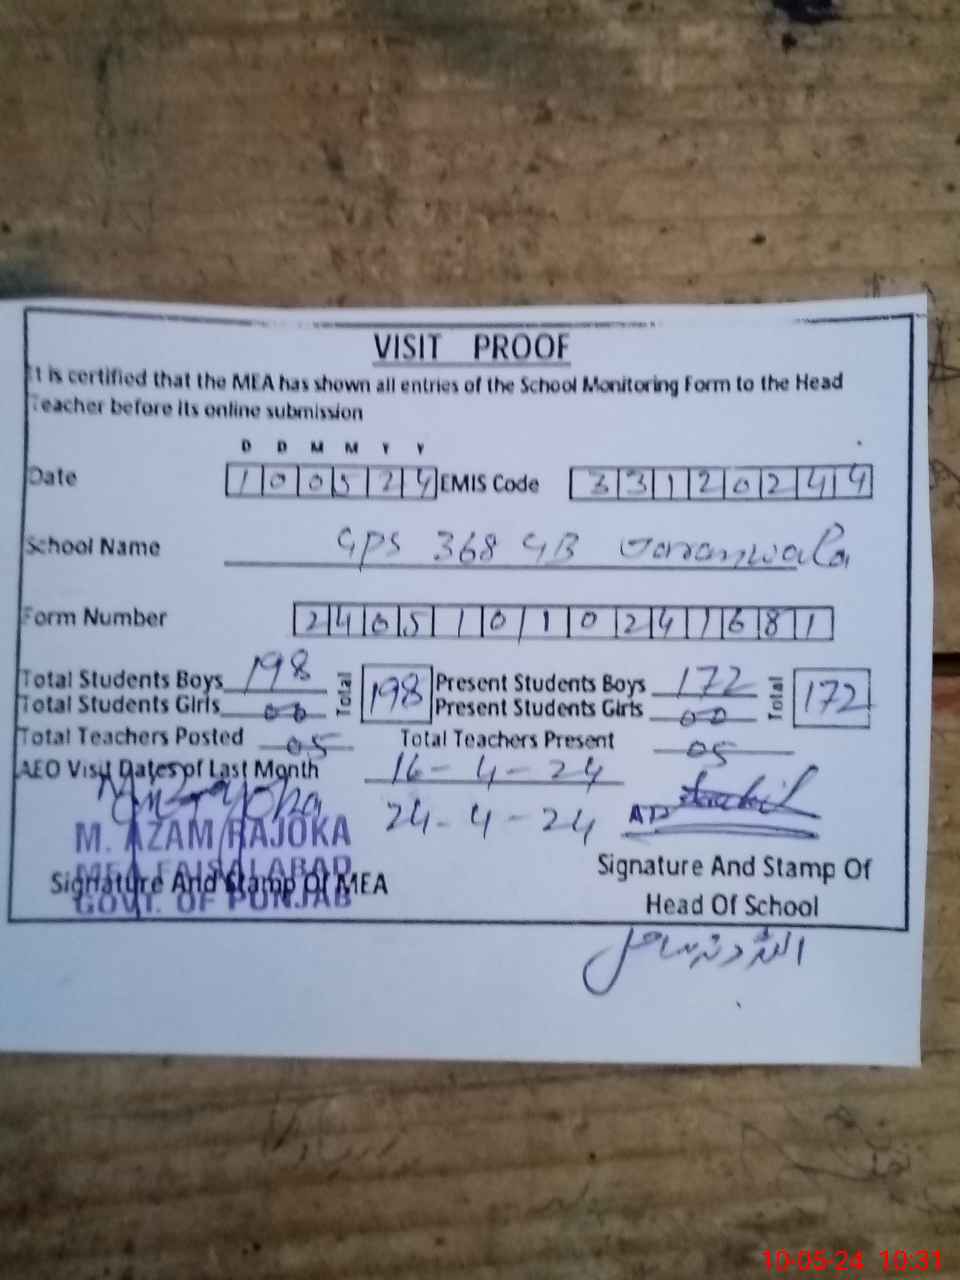 VISIT PROOF
It is certified that the MEA has shown all entries of the School Monitoring Form to the Head
Teacher before its online submission
D D M M Y Y
Date 100524 EMIS Code 33120244
School Name GPS 368 GB Jaranwala
Form Number 24051010241681
Total Students Boys 198 Total 198 Present Students Boys 172 Total 172
Total Students Girls 00 Present Students Girls 00
Total Teachers Posted 05 Total Teachers Present 05
AEO Visit Dates of Last Month 16-4-24
24-4-24
M. AZAM RAJOKA
MEA FAISALABAD
GOVT. OF PUNJAB
Signature And Stamp Of MEA
Signature And Stamp Of
Head Of School
10-05-24 10:31